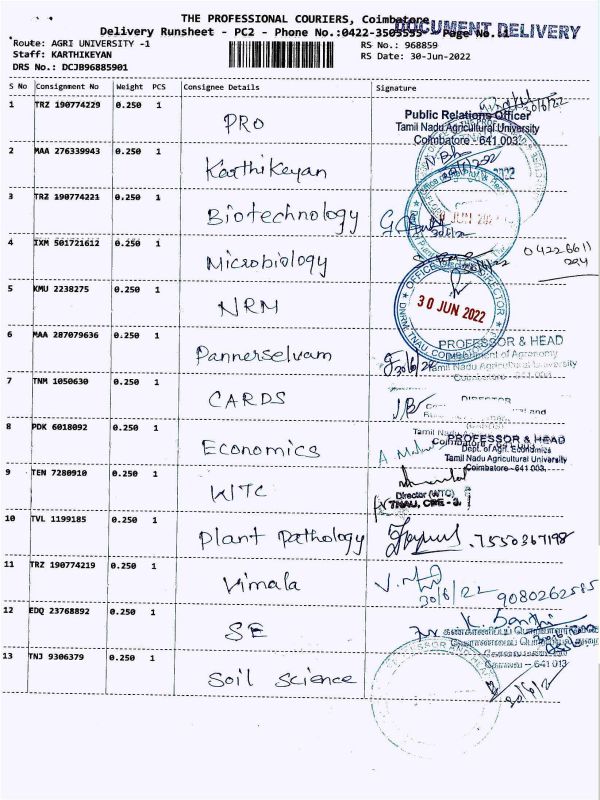 THE PROFESSIONAL COURIERS, Coimbatore
DOCUMENT DELIVERY
Delivery Runsheet - PC2 - Phone No.:0422-3503555 Page No.1
Route: AGRI UNIVERSITY -1
RS No.: 968859
Staff: KARTHIKEYAN
RS Date: 30-Jun-2022
DRS No.: DCJB96885901
S No Consignment No Weight PCS Consignee Details Signature
1 TRZ 190774229 0.250 1 PRO
30/6/22
Public Relations Officer
Tamil Nadu Agricultural University
Coimbatore - 641 003.
2 MAA 276339943 0.250 1 Karthikeyan
3 TRZ 190774221 0.250 1 Biotechnology
JUN 2022
4 IXM 501721612 0.250 1 Microbiology
04226611
294
5 KMU 2238275 0.250 1 NRM
OFFICE DIRECTOR
30 JUN 2022
DNRM, TNAU, COIMBATORE
6 MAA 287079636 0.250 1 Pannerselvam
PROFESSOR & HEAD
Department of Agronomy
Tamil Nadu Agricultural University
Coimbatore - 641 003.
30/6/22
7 TNM 1050630 0.250 1 CARDS
DIRECTOR
8 PDK 6018092 0.250 1 Economics
PROFESSOR & HEAD
Dept. of Agrl. Economics
Tamil Nadu Agricultural University
Coimbatore - 641 003.
9 TEN 7280910 0.250 1 WTC
Director (WTC)
TNAU, CBE - 3.
10 TVL 1199185 0.250 1 Plant Pathology
7550367198
11 TRZ 190774219 0.250 1 Vimala
30/6/22 9080262585
12 EDQ 23768892 0.250 1 SE
கண்காணிப்புப் பொறியாளர்
கோவை - 641 013
13 TNJ 9306379 0.250 1 Soil Science